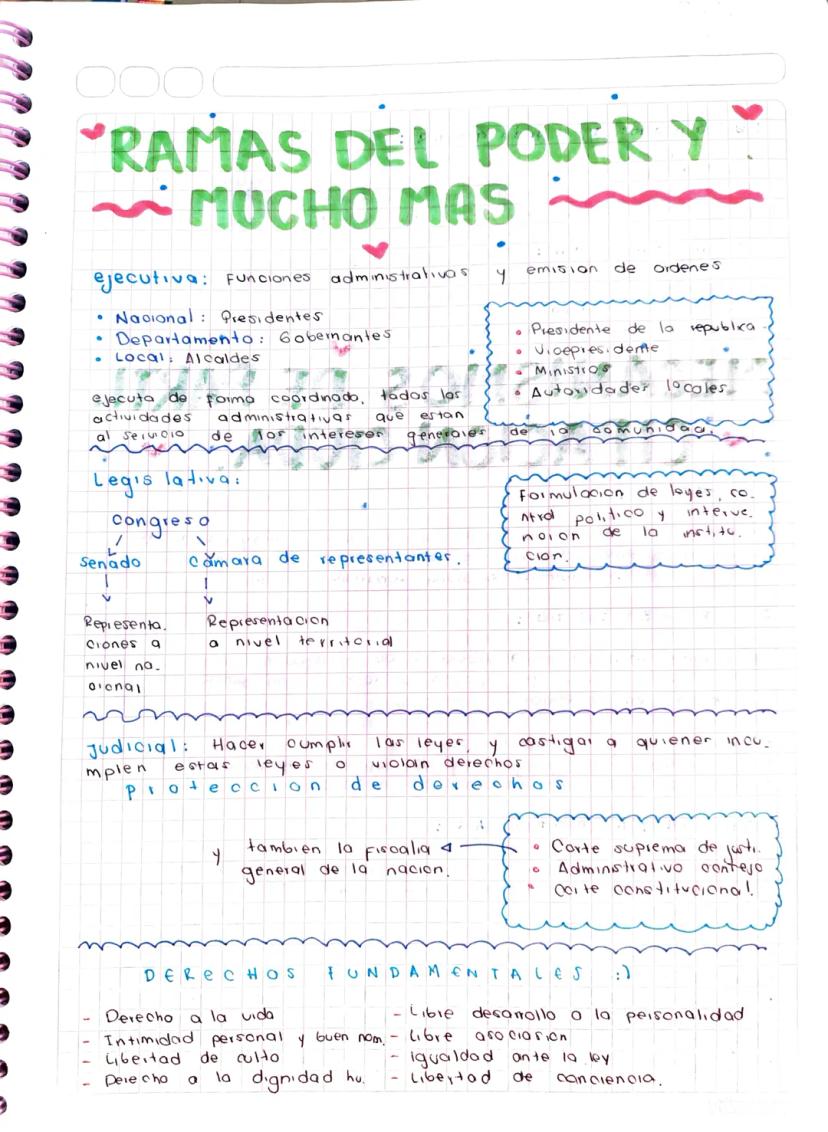 RAMAS DEL PODER Y
MUCHO MAS
ejecutiva: Funciones administrativas y emision de ordenes
• Nacional: Presidentes
• Departamento: Gobernantes
• Local: Alcaldes
• Presidente de la republica.
• Vicepresidente
• Ministros
• Autoridades locales
ejecuta de forma coordinado, todas las
actividades administrativas que estan
al servicio de los intereses generales de la comunidad.
Legislativa:
congreso
Senado
Cámara de representantes.
Representa.
ciones a
nivel na.
cional
Representacion
a nivel territorial
Formulacion de leyes, co.
ntrol politico y interve.
ncion de la institu.
cion.
Judicial: Hacer cumplir las leyes, y castigar a quienes incu.
mplen estas leyes o violan derechos
Proteccion de derechos
• Corte suprema de justi.
• Administrativo contejo
• corte constitucional.
y tambien la fiscalia
general de la nacion.
DERECHOS FUNDAMENTALES :)
- Derecho a la vida
- Intimidad personal y buen nom.
- Libertad de culto
- Derecho a la dignidad hu.
- Libre desarrollo a la personalidad
- Libre asociasion
- Igualdad ante la ley
- Libertad de conciencia.